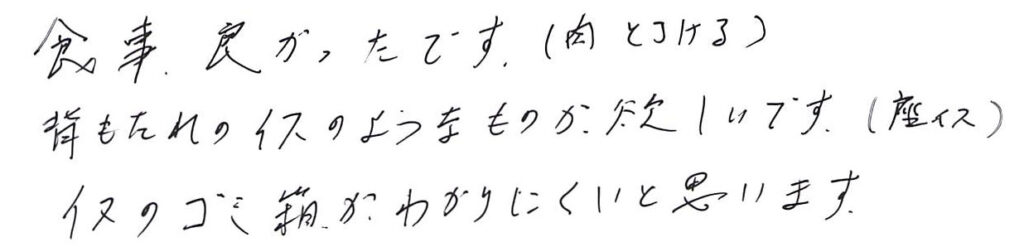 食事、良かったです。(肉とろける)
背もたれのイスのようなものが欲しいです。(座イス)
イヌのゴミ箱がわかりにくいと思います。